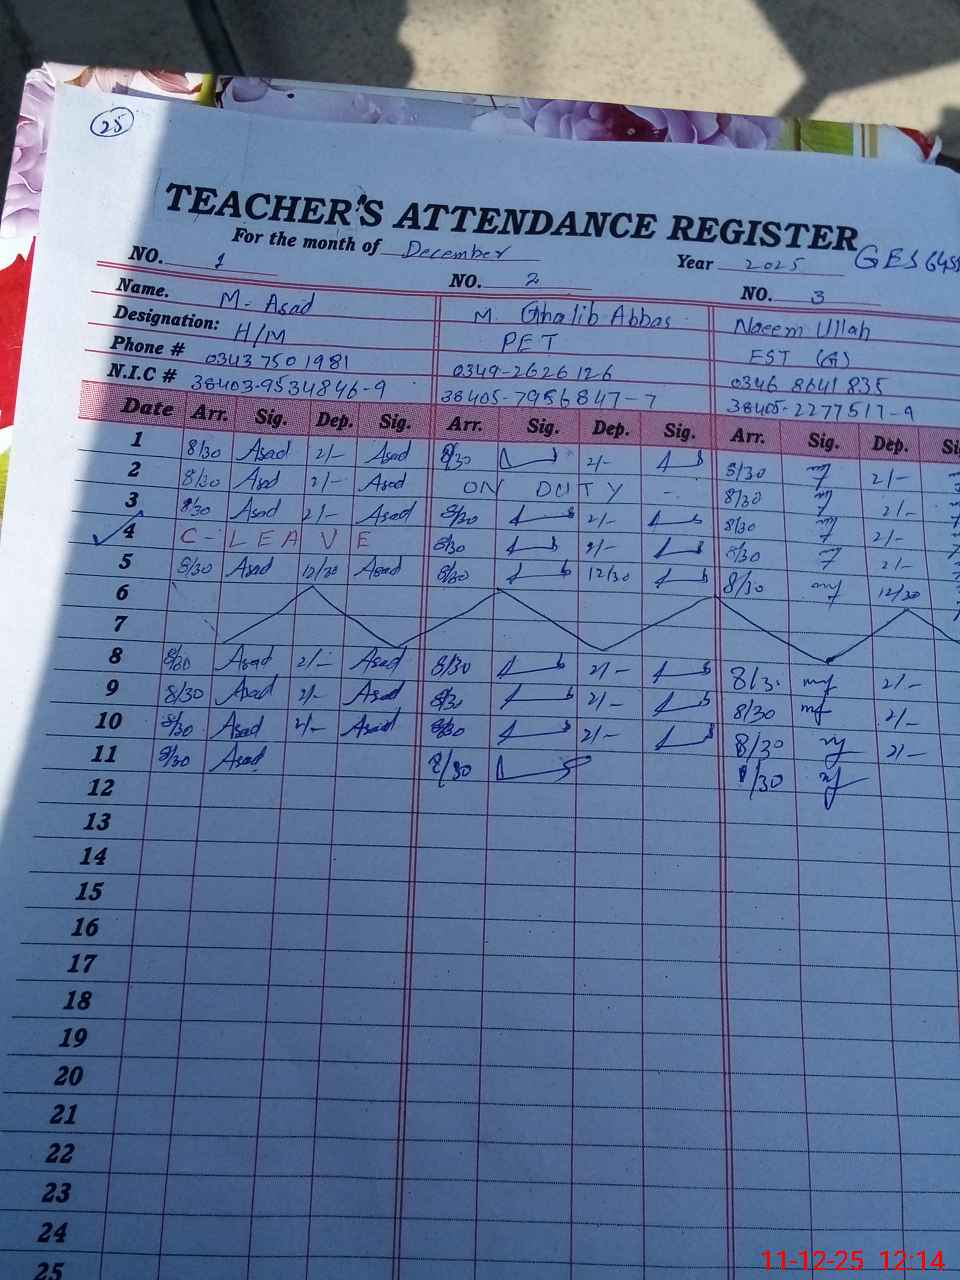 25
TEACHER'S ATTENDANCE REGISTER
For the month of December Year 2025
NO. 1 NO. 2 NO. 3
Name. M. Asad M. Ghalib Abbas Naeem Ullah
Designation: H/M PET EST (G)
Phone # 0343 7501981 0349-2626126 0346 8641835
N.I.C # 38403-9534846-9 38405-7956847-7 38405-2277517-9
Date Arr. Sig. Dep. Sig. Arr. Sig. Dep. Sig. Arr. Sig. Dep.
1 8/30 Asad 2/- Asad 8/30 2/- 8/30 2/-
2 8/30 Asad 2/- Asad ON DUTY 8/30 2/-
3 8/30 Asad 2/- Asad 8/30 2/- 8/30 2/-
4 C-LEAVE 8/30 2/- 8/30 2/-
5 8/30 Asad 12/30 Asad 8/30 12/30 8/30 12/30
6
7
8 8/30 Asad 2/- Asad 8/30 2/- 8/3. 2/-
9 8/30 Asad 2/- Asad 8/30 2/- 8/30 2/-
10 8/30 Asad 2/- Asad 8/30 2/- 8/30 2/-
11 8/30 Asad 8/30 8/30
12
13
14
15
16
17
18
19
20
21
22
23
24
25
11-12-25 12:14